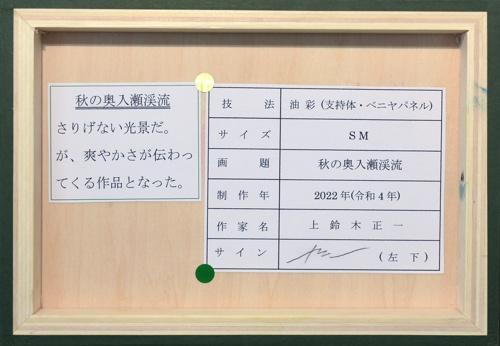 秋の奥入瀬渓流
さりげない光景だ。
が、爽やかさが伝わっ
てくる作品となった。
技法 油彩 (支持体・ベニヤパネル)
サイズ SM
画題 秋の奥入瀬渓流
制作年 2022年(令和4年)
作家名 上鈴木正一
サイン (左下)